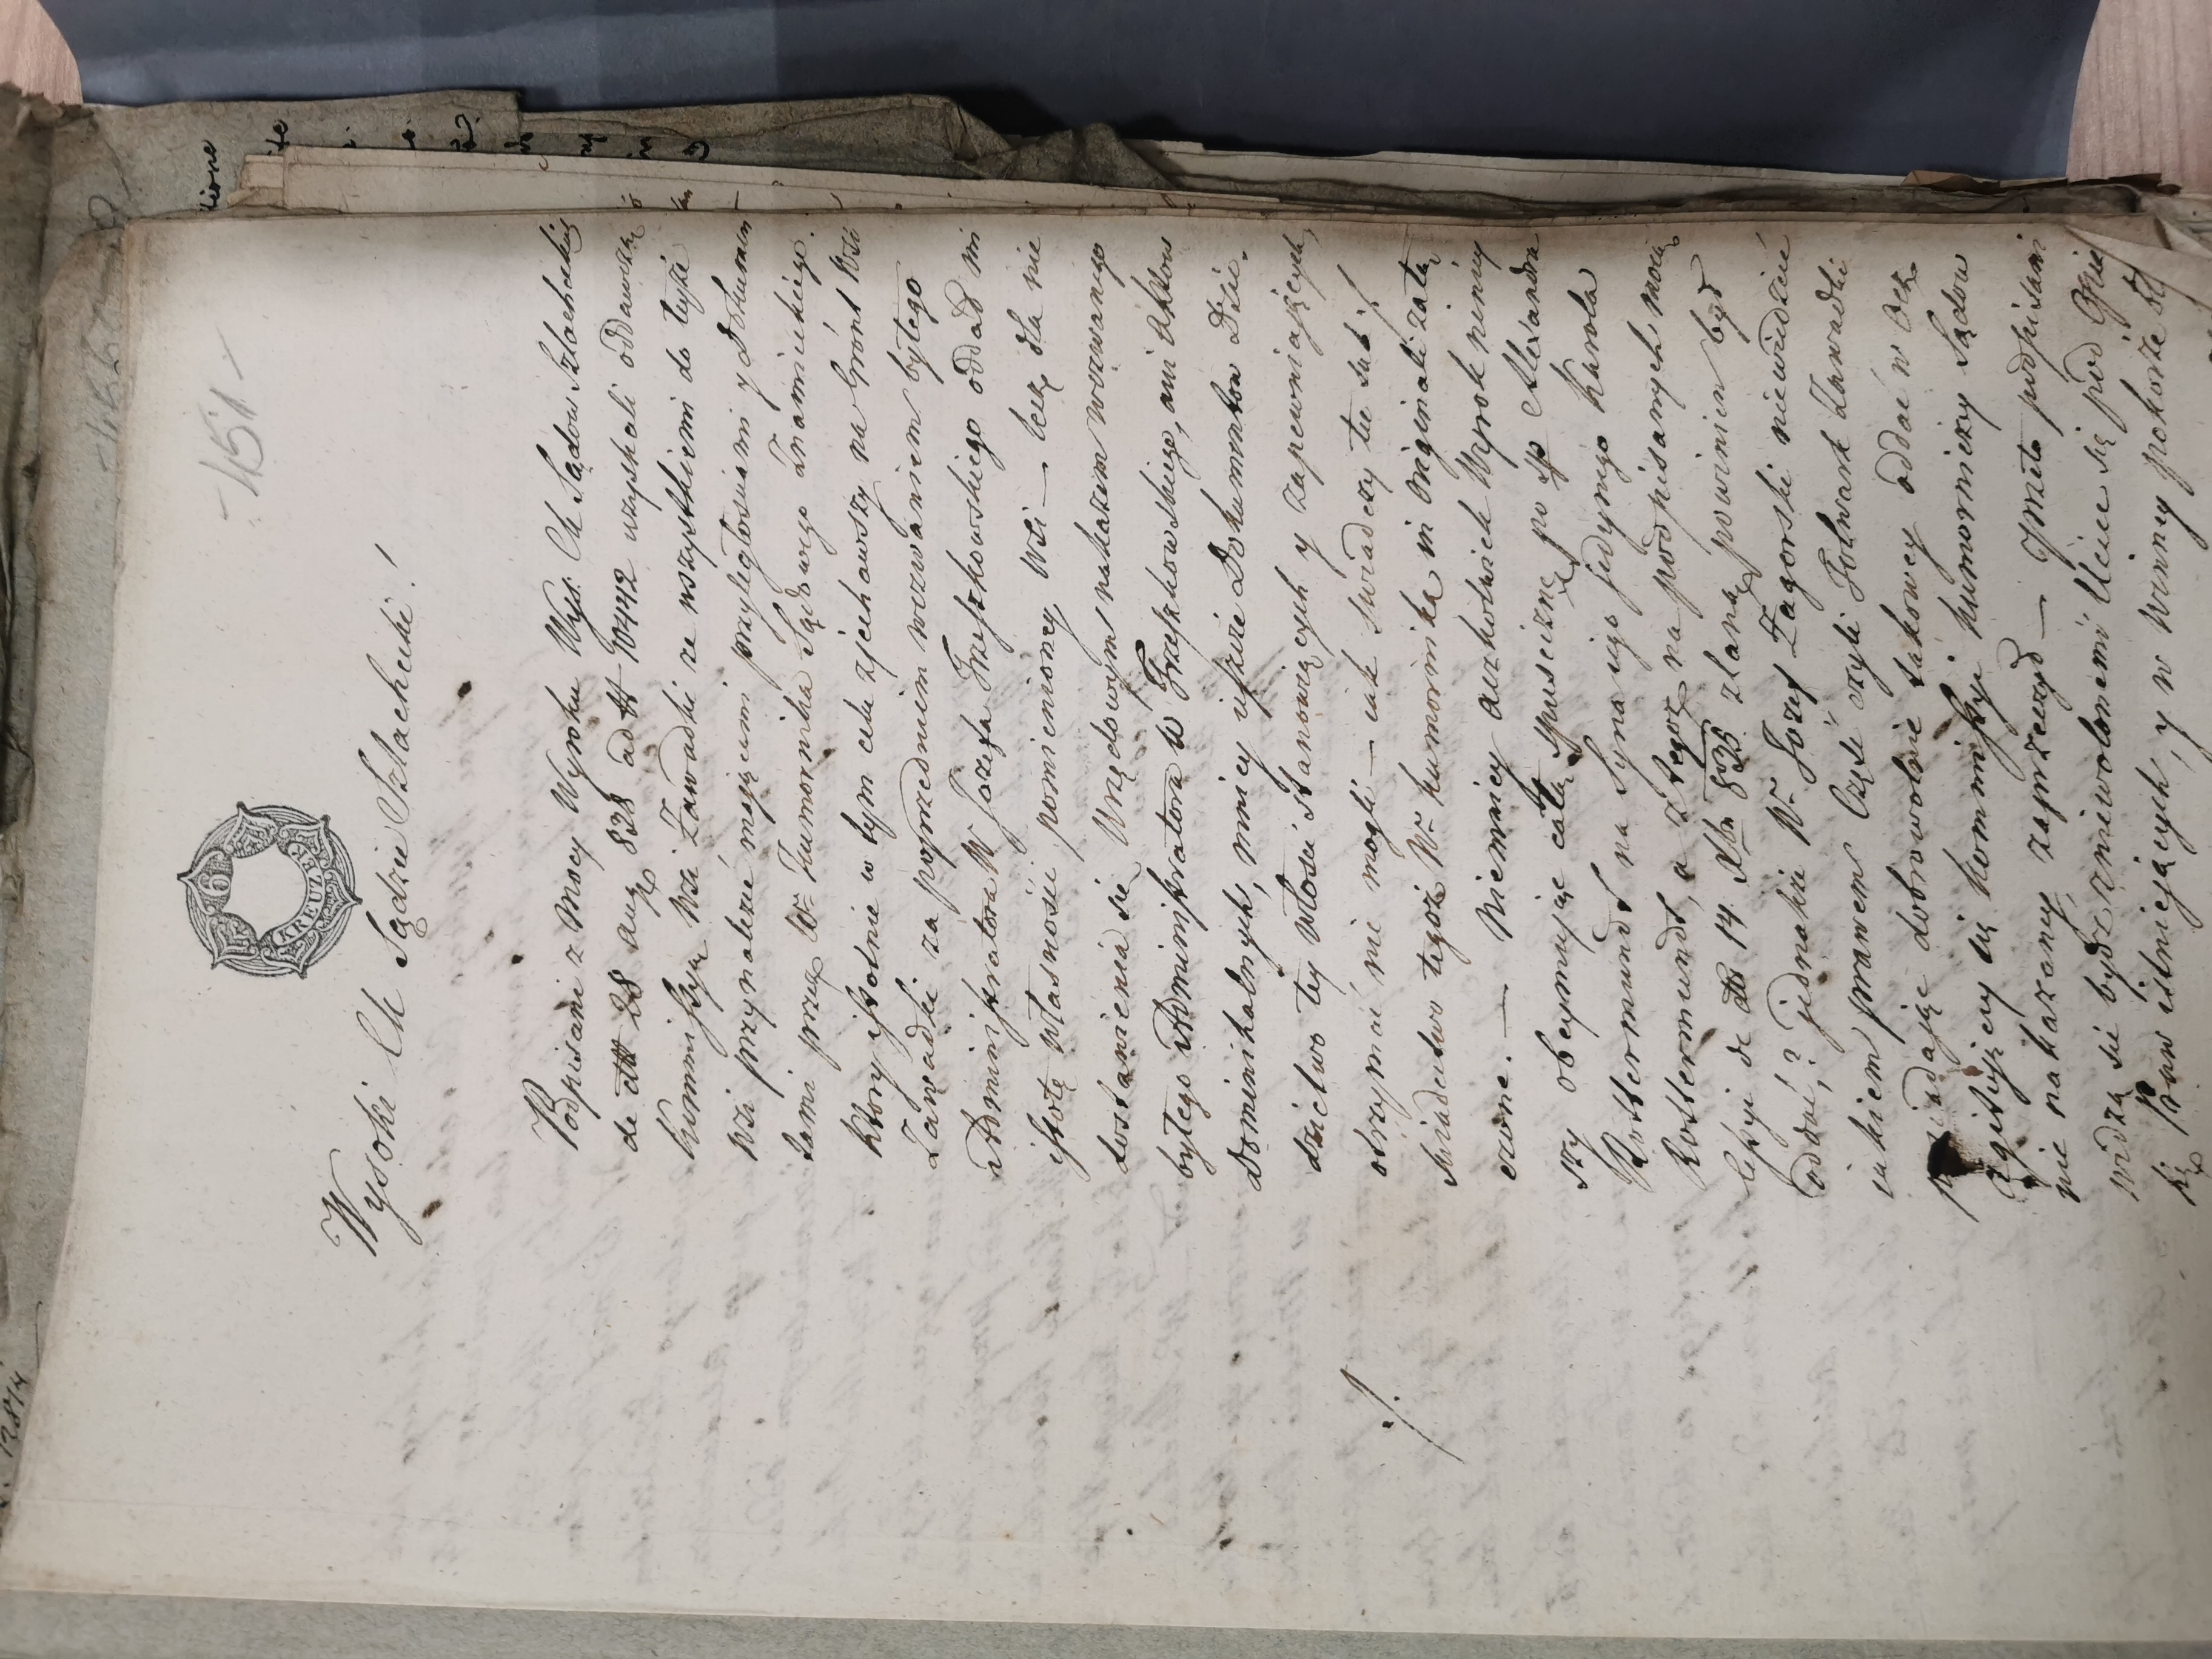 -151-
6 KREUZER
Wysoki CK Sądzie Szlachecki!
Podpisani z Mocy Wyroku Wys. CK Sądow Szlacheckich
de dtt 28 aug 828 ad N 10442 uzyskali oddawczą
kommissyą Wsi Zawadki ze wszystkiemi do teyże
Wsi przynależeć mającemi przyległościami y Dokumen
tami przez Wo Kumornika Sądowego Znamieckiego.
Ktory istotnie w tym celu zjechawszy na Grónt Wsi
Zawadki za poprzedniem wezwaniem byłego
Adminisratora W Jozefa Trzeszkowskiego oddał mi
istotę własności pomienioney Wsi — lecz dla nie
dostawienia się Urzędowym nakazem wezwanego
byłego Adminisratora W Trzeszkowskiego, ani aktow
Dominikalnych, mniey ieszcze Dokumentow Dzie-
dzictwo tey włosci stanowiących y zapewniaiących
otrzymać nie mogli — iak swiadczy tu sub ·/.
swiadectwo tegoż Wo kumornika in originali załą
czone. — Niemniey aczkolwiek Wyrok niniey
szy obeymuję całą spusciznę po sp Alexandra
Rottermundt na Syna iego jedynego Karola
Rottermundt, a z tegoż na podpisanych mocą
Cessyi de dto 14. Xbr 825 zlaną powinien być
oddać,? jednakże Wo Jozef Zagorski niewiedzieć
iakiem prawem Częsć czyli Folwark Zawadki
posiadaję dobrowolnie takowey oddać w Ocze
Agituiącey się kommissyi kumorniczey Sądow
nie nakazaney zaprzeczył — Przeto podpisani
widzą się bydź zniewolonemi Uciec się pod Opie
kę Praw istnieiących, y w winney pokorze